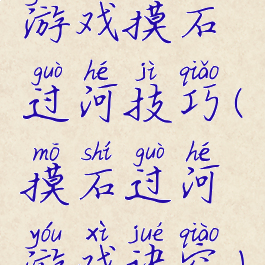 游戏摸石
guò hé jì qiǎo
过河技巧(
mō shí guò hé
摸石过河
yóu xì jué qiào
游戏诀窍)